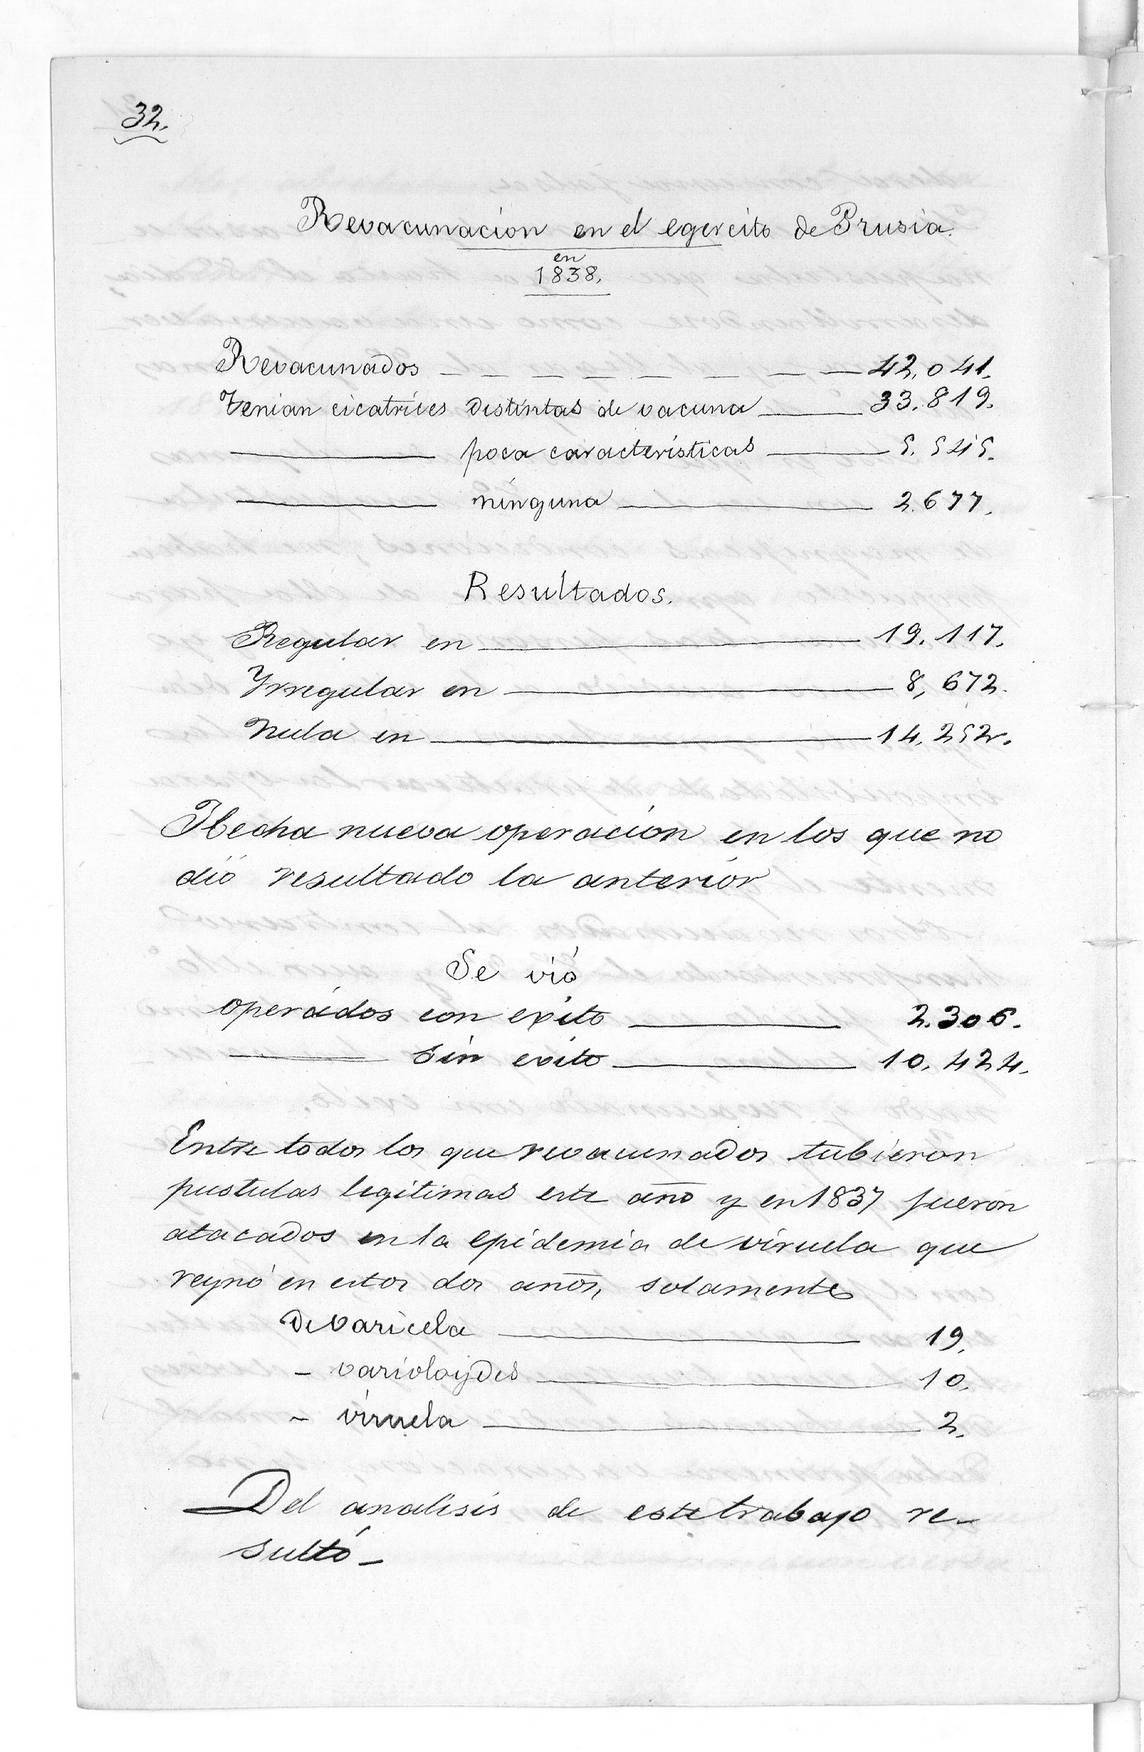 32.
Revacunacion en el egercito de Prusia.
en
1838.
Revacunados — — — — — — — — 42.041.
Tenian cicatrices distintas de vacuna — 33.819.
— poca caracteristicas — 5.545.
— ninguna — 2.677.
Resultados.
Regular en — 19.117.
Yrregular en — 8,672.
Nula en — 14.252.
Hecha nueva operacion en los que no
dió resultado la anterior
Se vió
operados con exito — 2.306.
— sin exito — 10.424.
Entre todos los que revacunados tubieron
pustulas legitimas este año y en 1837 fueron
atacados en la epidemia de viruela que
reynó en estos dos años, solamente
De varicela — 19.
- varioloydes — 10.
- viruela — 2.
Del analisis de este trabajo re-
sultó -